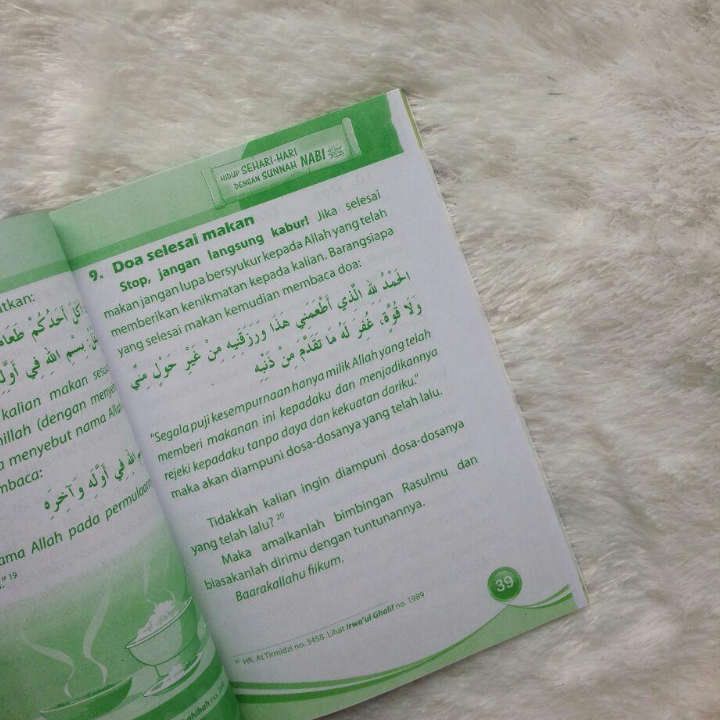 itkan:
كَلَ أَحَدُكُمْ طَعَامً
بِسْمِ اللهِ فِي أَوَّلِهِ
kalian makan
millah (dengan
menyebut nama Allah
mbaca:
اللهِ فِي أَوَّلِهِ وَآخِرِهِ
ama Allah pada permulaan
." 19
HIDUP SEHARI-HARI
DENGAN SUNNAH NABI ﷺ
9. Doa selesai makan
Stop, jangan langsung kabur! Jika selesai
makan jangan lupa bersyukur kepada Allah yang telah
memberikan kenikmatan kepada kalian. Barangsiapa
yang selesai makan kemudian membaca doa:
الْحَمْدُ لِلَّهِ الَّذِي أَطْعَمَنِي هَذَا وَرَزَقَنِيهِ مِنْ غَيْرِ حَوْلٍ مِنِّي
وَلَا قُوَّةٍ، غُفِرَ لَهُ مَا تَقَدَّمَ مِنْ ذَنْبِهِ
"Segala puji kesempurnaan hanya milik Allah yang telah
memberi makanan ini kepadaku dan menjadikannya
rejeki kepadaku tanpa daya dan kekuatan dariku."
maka akan diampuni dosa-dosanya yang telah lalu.
Tidakkah kalian ingin diampuni dosa-dosanya
yang telah lalu? 20
Maka amalkanlah bimbingan Rasulmu dan
biasakanlah dirimu dengan tuntunannya.
Baarakallahu fiikum.
20 HR. At Tirmidzi no. 3458. Lihat Irwa'ul Ghalil no. 1989
39